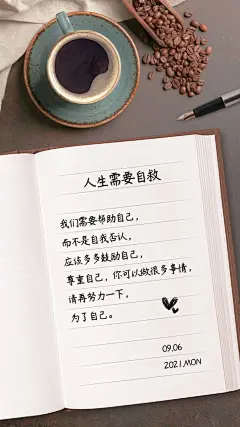 人生需要自救
我们需要帮助自己，
而不是自我否认，
应该多多鼓励自己，
尊重自己，你可以做很多事情，
请再努力一下，
为了自己。
09.06
2021.MON